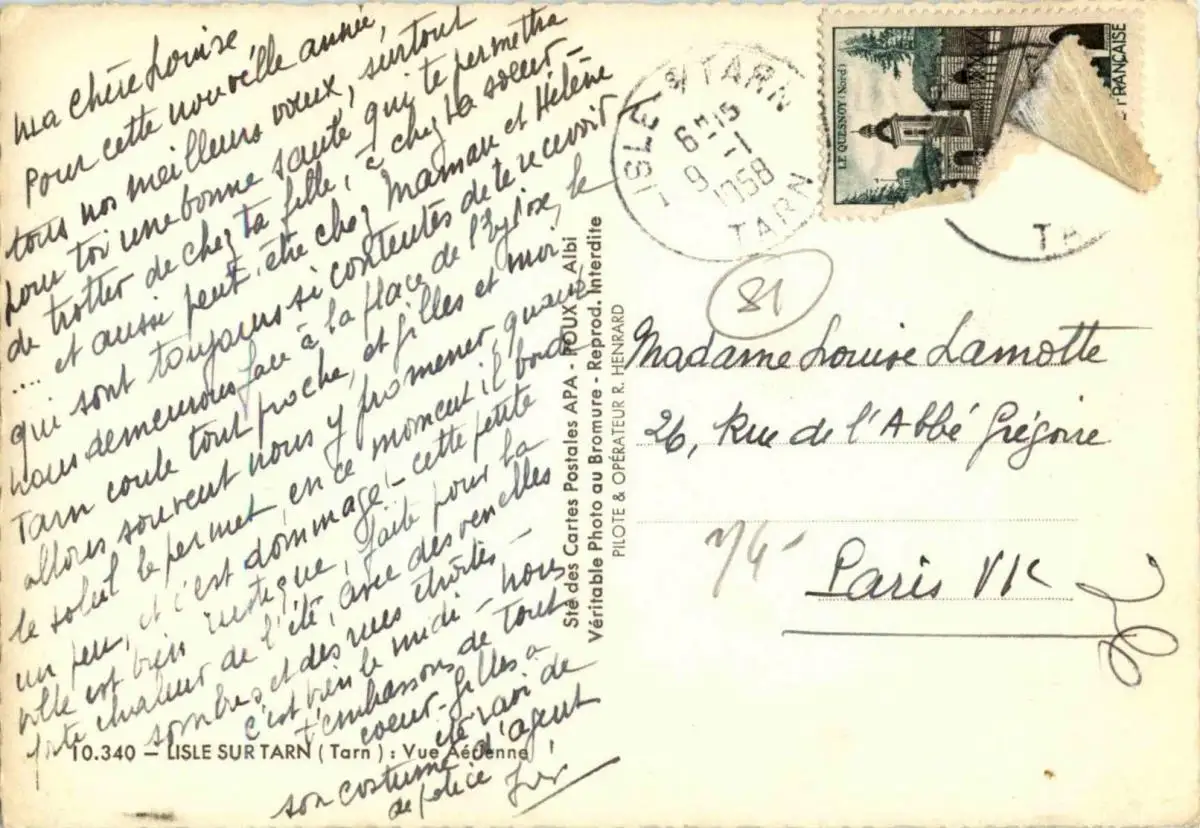 Ma chère Louise
Pour cette nouvelle année,
tous nos meilleurs voeux, surtout
pour toi une bonne santé qui te permettra
de trotter de chez ta fille, à chez ta soeur
.... et aussi peut-être chez Maman et Hélène
qui sont toujours si contentes de te recevoir
nous demeurons face à la place de l'Eglise, le
Tarn coule tout proche, et Gilles et moi
allons souvent nous y promener, quand
le soleil le permet, en ce moment il boude
un peu, et c'est dommage! - cette petite
ville est bien rustique, faite pour la
forte chaleur de l'été, avec des venelles
sombres et des rues étroites -
c'est bien le midi - nous
t'embrassons de tout
coeur - Gilles a
été ravi de
son costume d'agent
de police !
10.340 — LISLE SUR TARN ( Tarn ) : Vue Aérienne
Sté des Cartes Postales APA - POUX - Albi
Véritable Photo au Bromure - Reprod. Interdite
PILOTE & OPÉRATEUR R. HENRARD
LISLE S/TARN
9 -1
1958
TARN
LE QUESNOY (Nord)
FRANÇAISE
TA
81
Madame Louise Lamotte
26, Rue de l'Abbé Grégoire
Paris VIe